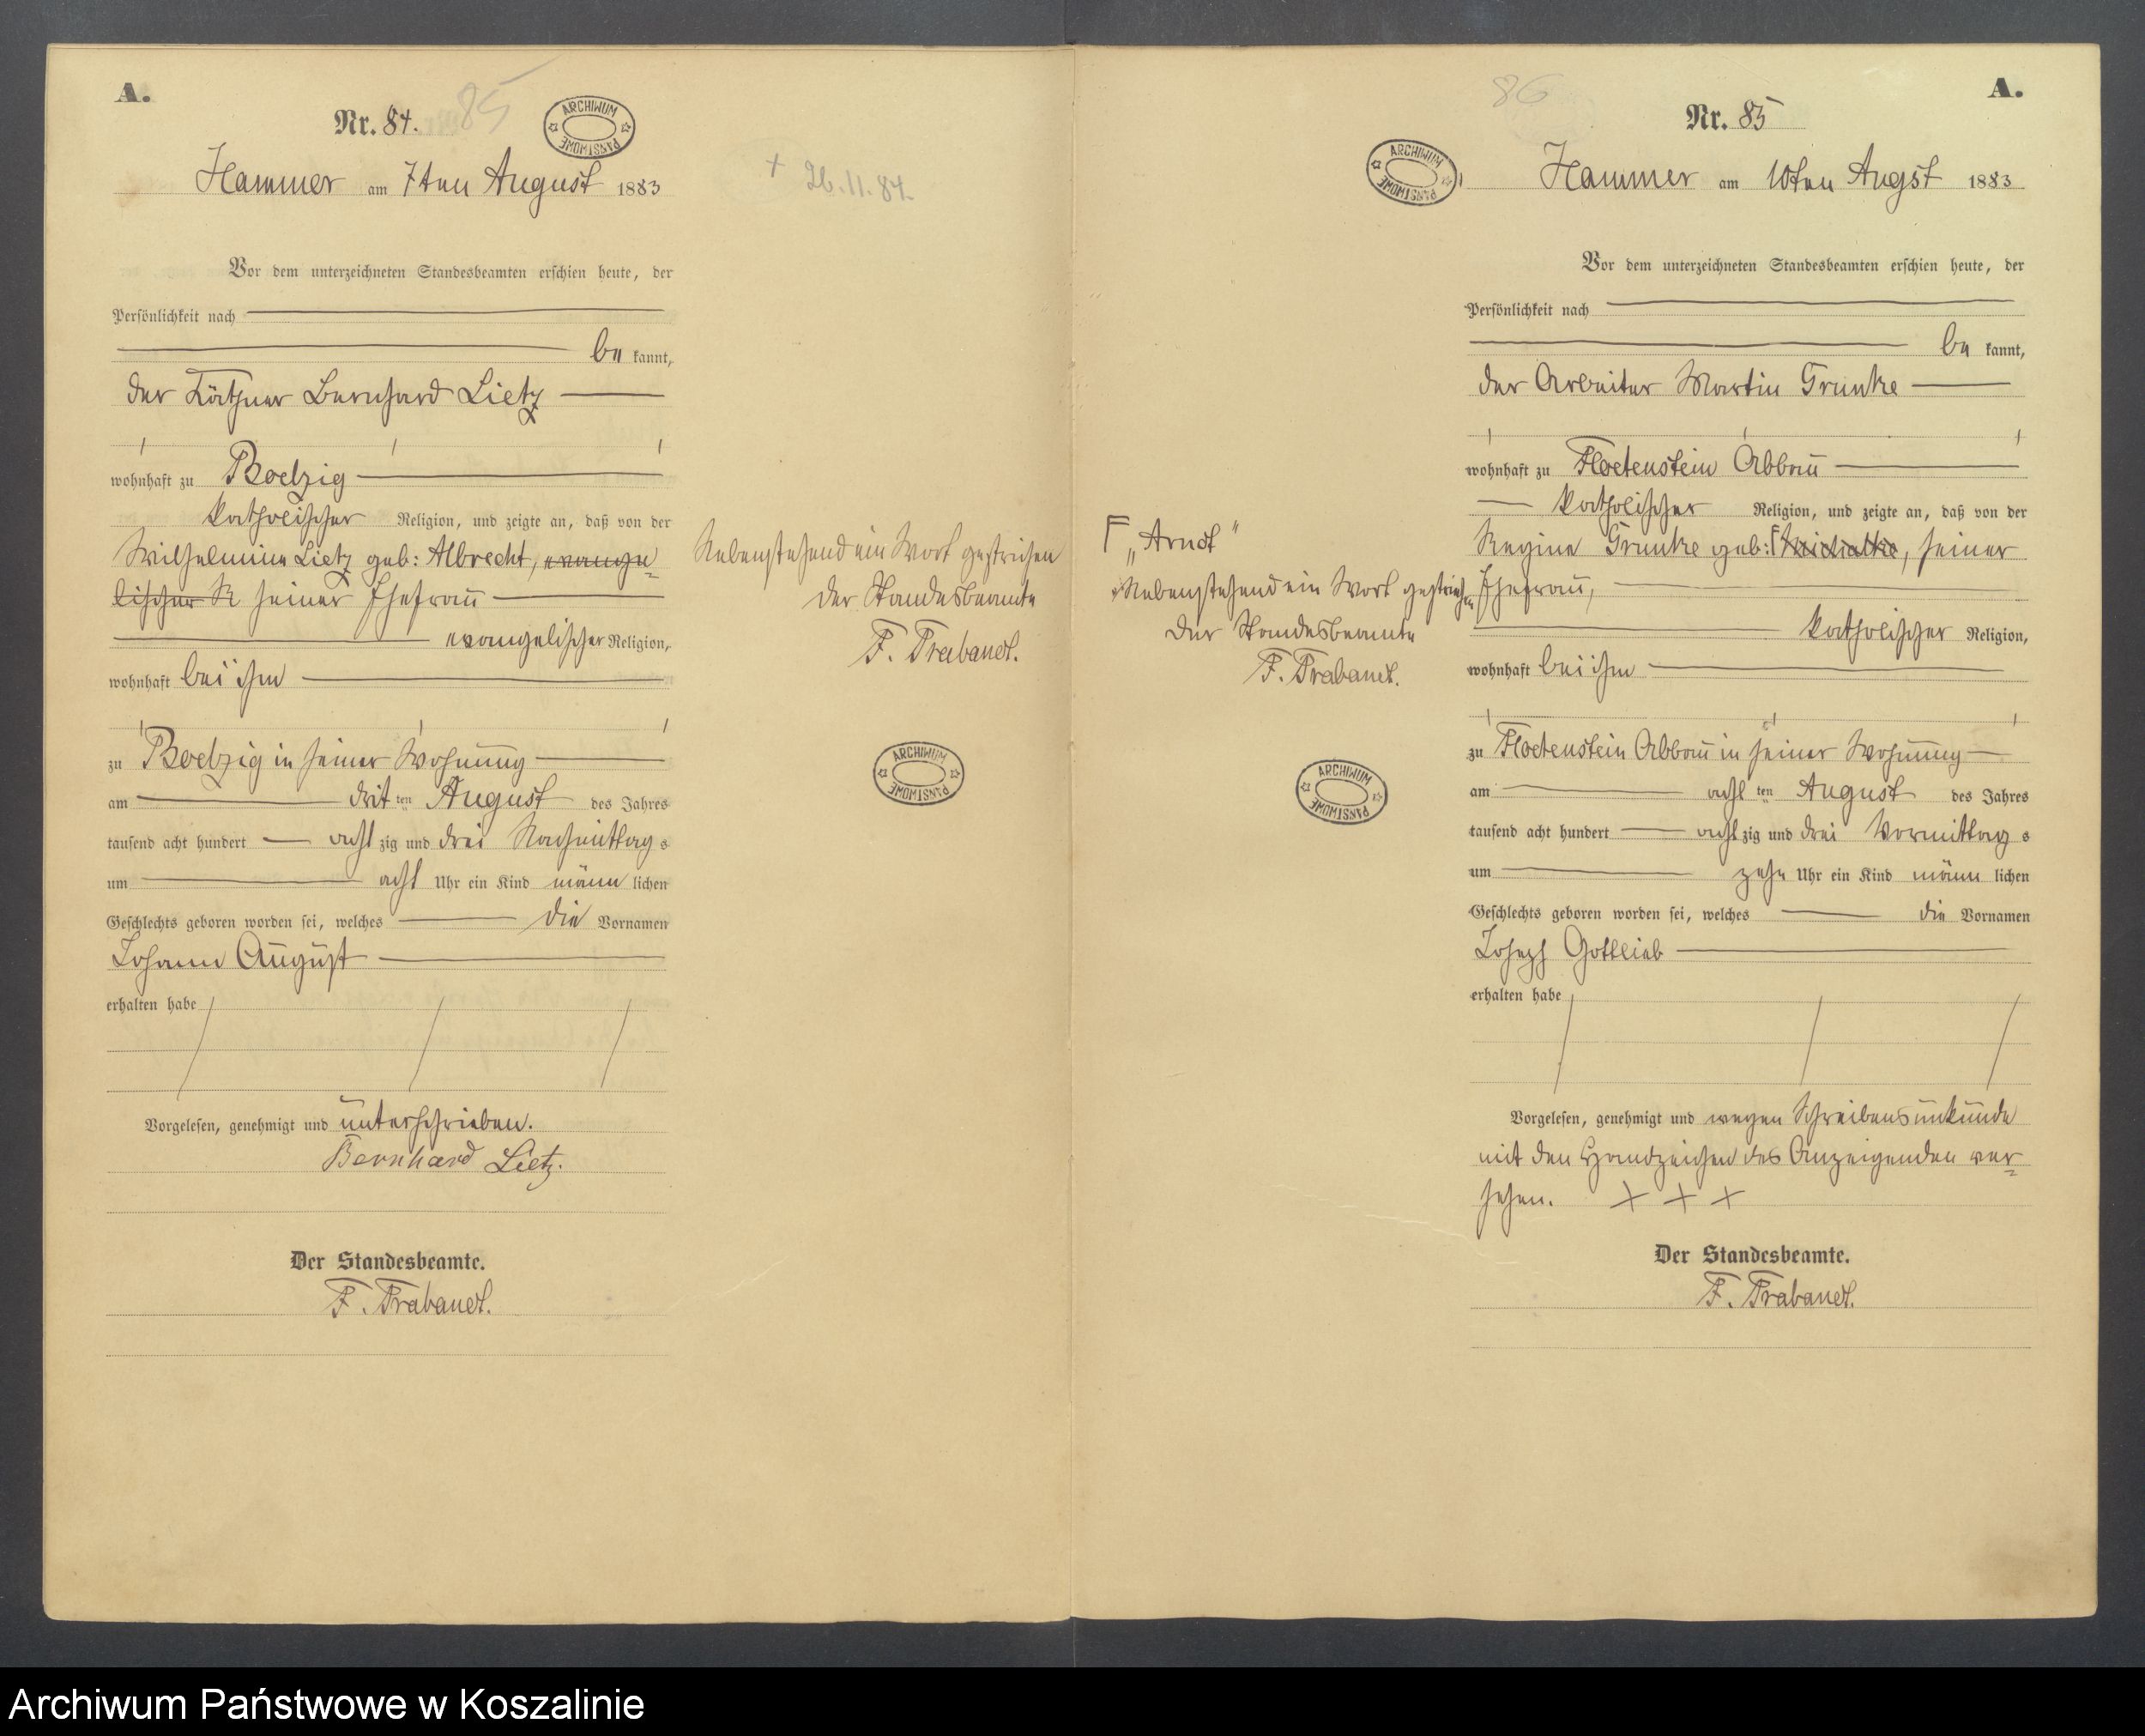 A.
Nr. 84.
85
ARCHIWUM PAŃSTWOWE
Hammer am 7ten August 1883
+ 26.11.84.
Vor dem unterzeichneten Standesbeamten erschien heute, der
Persönlichkeit nach
be kannt,
der Käthner Bernhard Lietz
wohnhaft zu Boelzig
katholischer Religion, und zeigte an, daß von der
Wilhelmine Lietz geb: Albrecht, evange=
lischer R seiner Ehefrau
evangelischer Religion,
wohnhaft bei ihm
zu Boelzig in seiner Wohnung
am drit ten August des Jahres
tausend acht hundert acht zig und drei Nachmittag s
um acht Uhr ein Kind männ lichen
Geschlechts geboren worden sei, welches die Vornamen
Johann August
erhalten habe
Vorgelesen, genehmigt und unterschrieben.
Bernhard Lietz.
Der Standesbeamte.
F. Trabandt.
Nebenstehend ein Wort gestrichen
Der Standesbeamte
F. Trabandt.
ARCHIWUM PAŃSTWOWE
86
A.
Nr. 85
ARCHIWUM PAŃSTWOWE
Hammer am 10ten Augst 1883
Vor dem unterzeichneten Standesbeamten erschien heute, der
Persönlichkeit nach
be kannt,
der Arbeiter Martin Grunke
wohnhaft zu Floetenstein Abbau
katholischer Religion, und zeigte an, daß von der
Regine Grunke geb: Γ seiner
Ehefrau,
katholischer Religion,
wohnhaft bei ihm
zu Floetenstein Abbau in seiner Wohnung
am acht ten August des Jahres
tausend acht hundert acht zig und drei Vormittag s
um zehn Uhr ein Kind männ lichen
Geschlechts geboren worden sei, welches die Vornamen
Joseph Gottlieb
erhalten habe
Vorgelesen, genehmigt und wegen Schreibensunkunde
mit den Handzeichen des Anzeigenden ver=
sehen. + + +
Der Standesbeamte.
F. Trabandt.
Γ „Arndt"
Nebenstehend ein Wort gestrichen
Der Standesbeamte
F. Trabandt.
ARCHIWUM PAŃSTWOWE
Archiwum Państwowe w Koszalinie